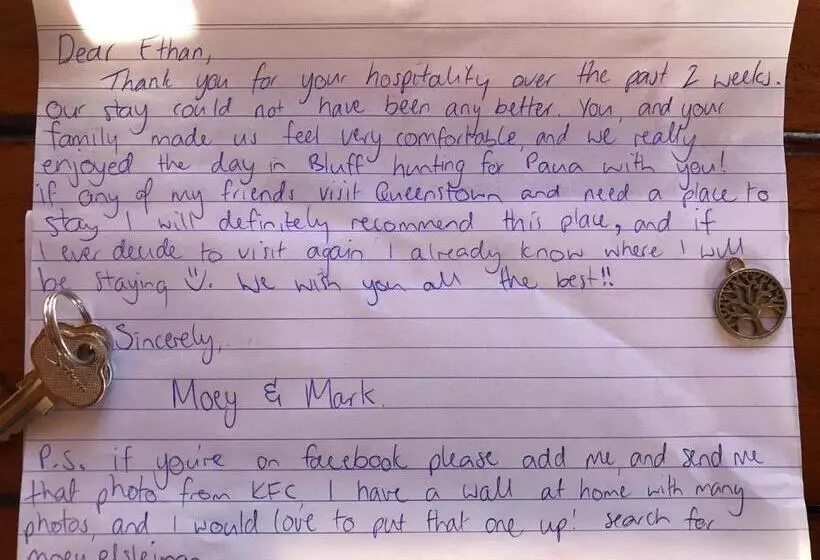 Dear Ethan,
Thank you for your hospitality over the past 2 weeks.
Our stay could not have been any better. You, and your
family made us feel very comfortable, and we really
enjoyed the day in Bluff hunting for Paua with you!
if any of my friends visit Queenstown and need a place to
stay I will definitely recommend this place, and if
I ever decide to visit again I already know where I will
be staying :). We wish you all the best!!
Sincerely,
Moey & Mark.
P.S. if you're on facebook please add me, and send me
that photo from KFC, I have a wall at home with many
photos, and I would love to put that one up! search for
moey